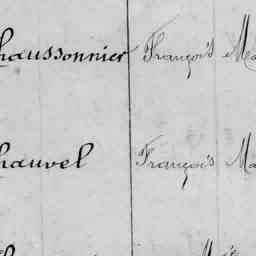 haussonnier François Ma
hauvel François Ma